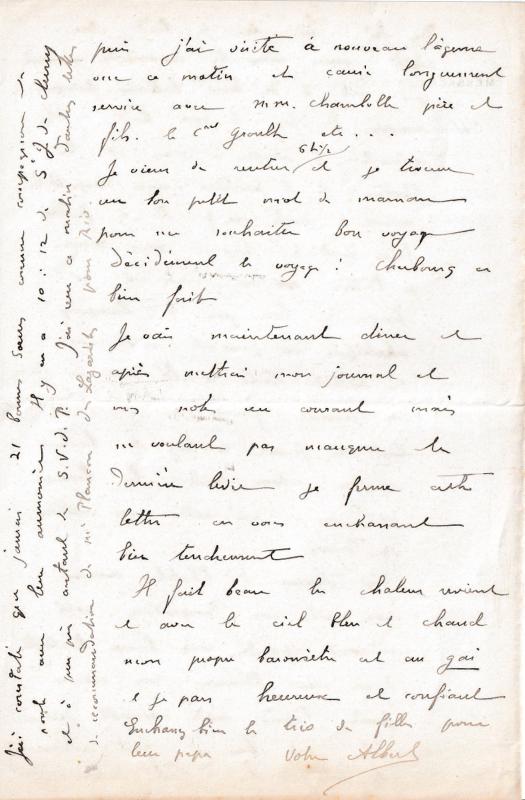 puis j'ai visité à nouveau l'agence
ce matin et causé longuement
service avec MM. Chamboll père et
fils. le Cnt Groult etc...
Je viens de rentrer 6h1/2 et je trouve
un bon petit mot de maman
pour me souhaiter bon voyage
décidément le voyage! Cherbourg
bien fait
Je vais maintenant diner et
après mettrai mon journal et
mes notes au courant mais
ne voulant pas manquer la
dernière levée je ferme cette
lettre en vous embrassant
bien tendrement
Il fait beau la chaleur revient
et avec le ciel bleu et chaud
mon propre baromètre est au gai
et je pars heureux et confiant
Embrassez bien le trio de filles pour
leur papa Votre Albert
J'ai constaté que jamais 21 bonnes soeurs comme compagnions
sont avec leur aumonier Il y en a 10 : 12 de S. J. de Cluny
et à peu près autant de S. V. d. P. J'ai reçu ce matin
de recommandation de Mr Plançon des Lazaristes pour Rio.